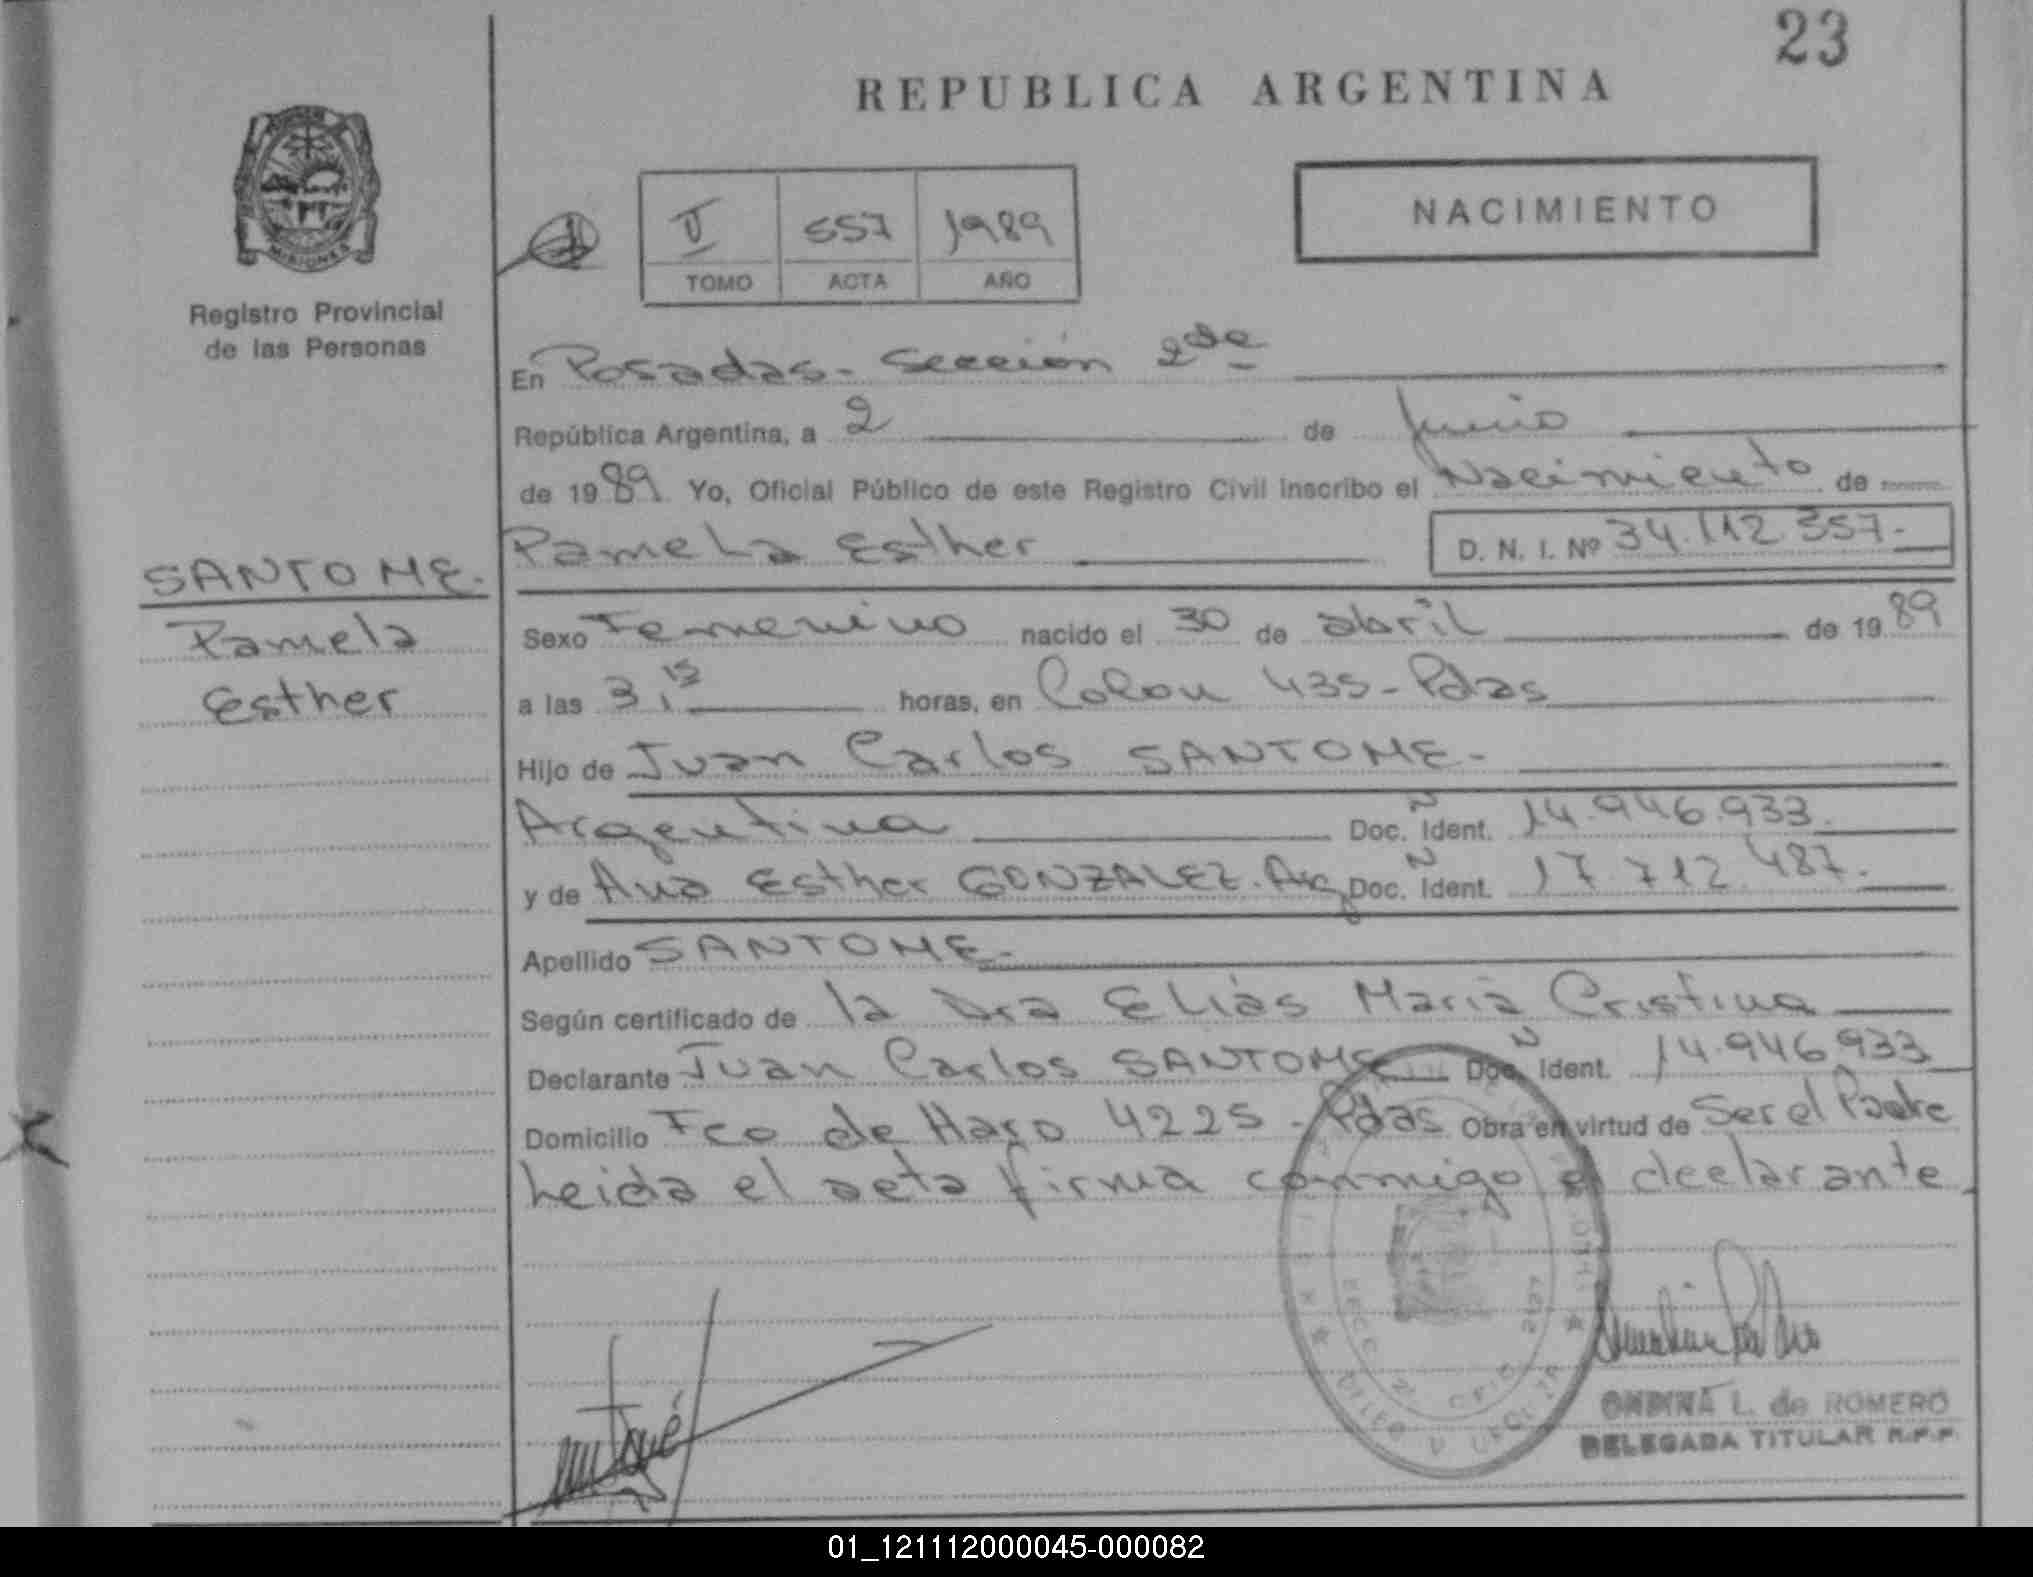 23
REPUBLICA ARGENTINA
MISIONES
Registro Provincial
de las Personas
II 557 1989
TOMO ACTA AÑO
NACIMIENTO
En Posadas - Sección 2da
República Argentina, a 2 de Junio
de 1989 Yo, Oficial Público de este Registro Civil inscribo el Nacimiento de
Pamela Esther D. N. I. Nº 34.112.357.-
SANTOME.
Pamela
Esther
Sexo Femenino nacido el 30 de abril de 1989
a las 3,15 horas, en Colon 435 - Pdas
Hijo de Juan Carlos SANTOME -
Argentina Doc. N Ident. 14.946.933.
y de Ana Esther GONZALEZ. Arg Doc. N Ident. 17.712.487.
Apellido SANTOME.
Según certificado de la Dra Eliás Maria Cristina
Declarante Juan Carlos SANTOME Doc. N Ident. 14.946.933
Domicilio Fco de Haro 4225 - Pdas Obra en virtud de Ser el Padre
Leida el acta firma conmigo el declarante.
ONDINA L. de ROMERO
DELEGADA TITULAR R.P.P.
01_121112000045-000082